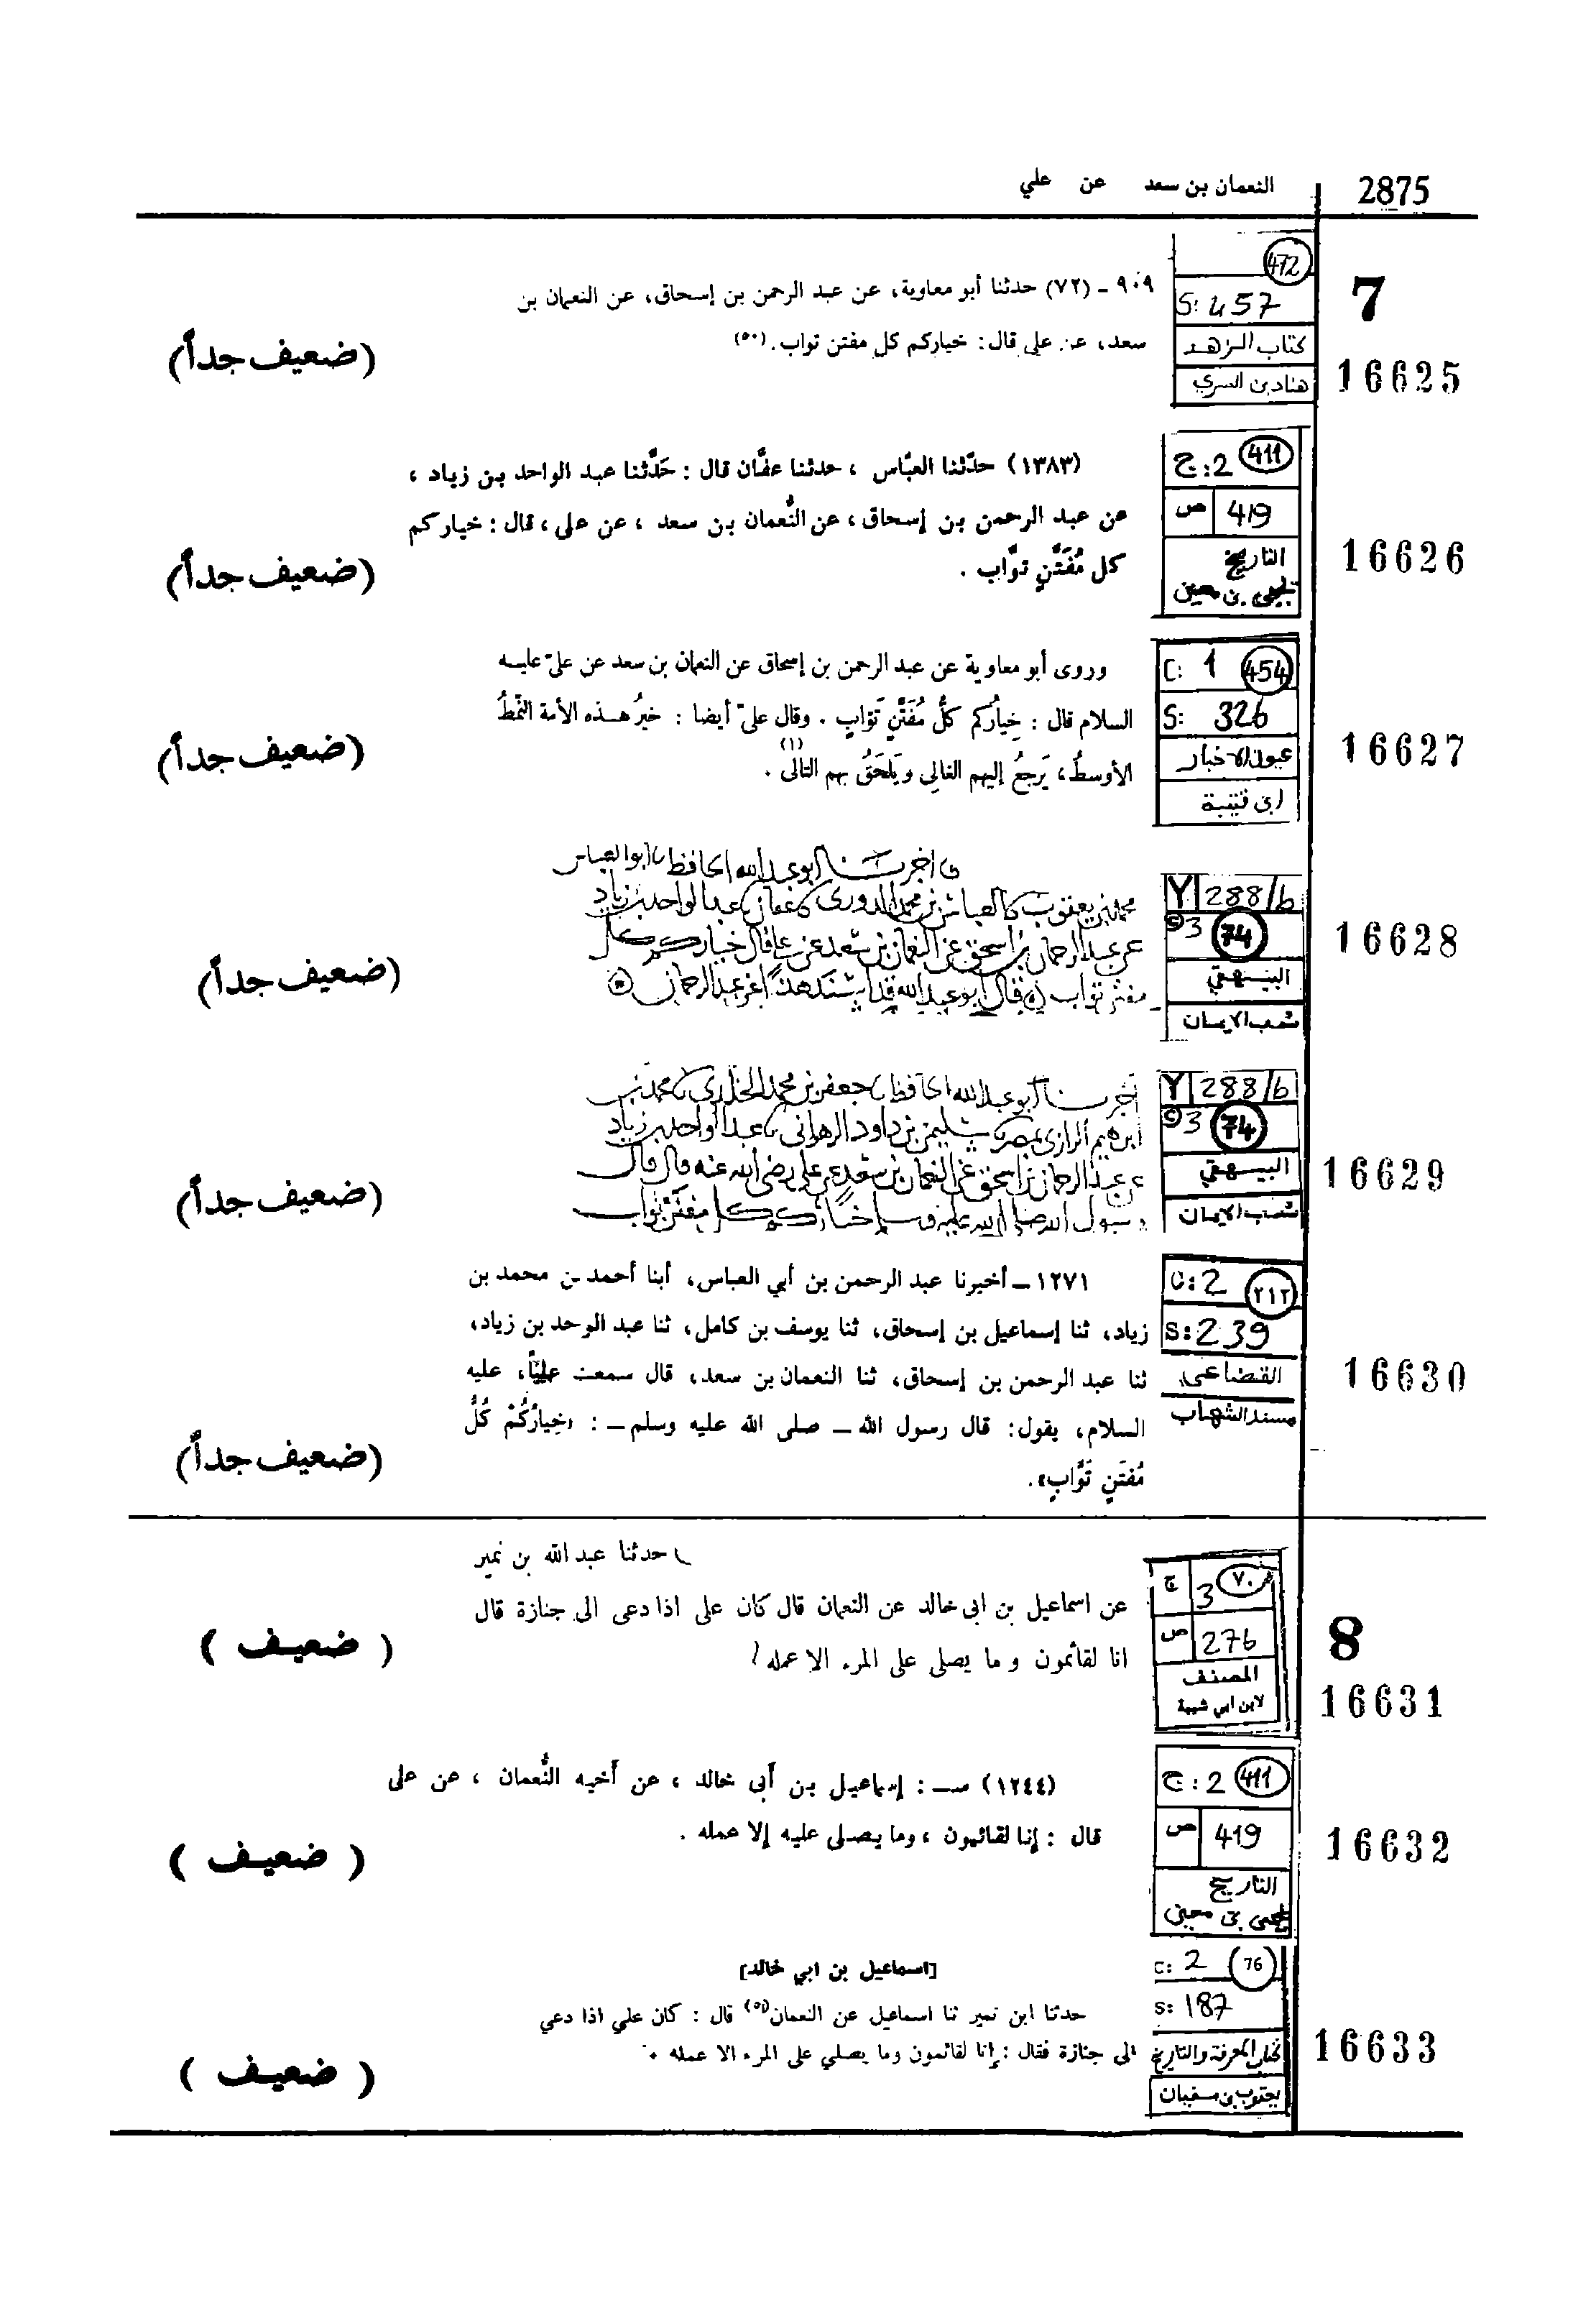 2875
النعمان بن سعد عن علي
7
472
S: 457
كتاب الزهد
هنادبن السري
16625
٩٠٩ - (٧٢) حدثنا أبو معاوية، عن عبد الرحمن بن إسحاق، عن النعمان بن
سعد، عن علي قال: خياركم كل مفتن تواب. (٥٠)
(ضعيف جداً)
ج: 2 411
ص 419
التاريخ
يحيى بن معين
16626
(١٣٨٣) حدّثنا العبّاس ، حدثنا عفَّان قال : حَدَّثنا عبد الواحد بن زياد ،
عن عبد الرحمن بن إسحاق ، عن النُّعمان بن سعد ، عن على ، قال : خياركم
كل مُفَتَّنٍ توَّاب .
(ضعيف جداً)
C: 1 454
S: 326
عيون الاخبار
ابن قتيبة
16627
وروى أبو معاوية عن عبد الرحمن بن إسحاق عن النعمان بن سعد عن علىّ عليه
السلام قال : خِيارُكم كلُّ مُفَتَّنٍ تَوّابٍ . وقال علىّ أيضا : خيرُ هـذه الأمة النَّمَطُ
الأوسطُ، يَرجعُ إليهم الغالى ويَلحَقُ بهم التالى(١) .
(ضعيف جداً)
Y 288/b
©3 74
البيهقي
شعب الايمان
16628
اخبرنا ابو عبد الله الحافظ ابو العباس
محمد بن يعقوب العباس بن محمد الدوري عفان عبد الواحد بن زياد
عن عبد الرحمان بن اسحق عن النعمان بن سعد عن علي قال خياركم كل
مفتن تواب قال ابو عبد الله عبد الرحمان
(ضعيف جداً)
Y 288/b
©3 74
البيهقي
شعب الايمان
16629
اخبرنا ابو عبد الله الحافظ جعفر بن محمد محمد بن
ابرهيم الرازي سليمن بن داود عبد الواحد بن زياد
عن عبد الرحمان بن اسحق عن النعمان بن سعد عن علي رضى الله عنه قال قال
رسول الله صلى الله عليه وسلم خياركم كل مفتن تواب
(ضعيف جداً)
C: 2 ٢١٢
S: 239
القضاعي
مسند الشهاب
16630
١٢٧١ – أخبرنا عبد الرحمن بن أبي العباس، أبنا أحمد بن محمد بن
زياد، ثنا إسماعيل بن إسحاق، ثنا يوسف بن كامل، ثنا عبد الوحد بن زياد،
ثنا عبد الرحمن بن إسحاق، ثنا النعمان بن سعد، قال سمعت عليّاً، عليه
السلام، يقول: قال رسول الله – صلى الله عليه وسلم – : «خِيارُكُمْ كُلُّ
مُفتَنٍ تَوَّابٍ».
(ضعيف جداً)
8
ج 3 ٧٠
ص 276
المصنف
لابن ابي شيبة
16631
حدثنا عبد الله بن نمير
عن اسماعيل بن ابى خالد عن النعمان قال كان على اذا دعى الى جنازة قال
انا لقائمون و ما يصلى على المرء الا عمله
( ضعيف )
ج: 2 411
ص 419
التاريخ
يحيى بن معين
16632
(١٢٤٤) س : إسماعيل بن أبى خالد ، عن أخيه النُّعمان ، عن على
قال : إنا لقائمون ، وما يصلى عليه إلا عمله .
( ضعيف )
C: 2 76
S: 187
كتاب المعرفة والتاريخ
يعقوب بن سفيان
16633
[اسماعيل بن ابي خالد]
حدثنا ابن نمير ثنا اسماعيل عن النعمان(٥) قال : كان علي اذا دعي
الى جنازة فقال : إنا لقائمون وما يصلي على المرء الا عمله .
( ضعيف )